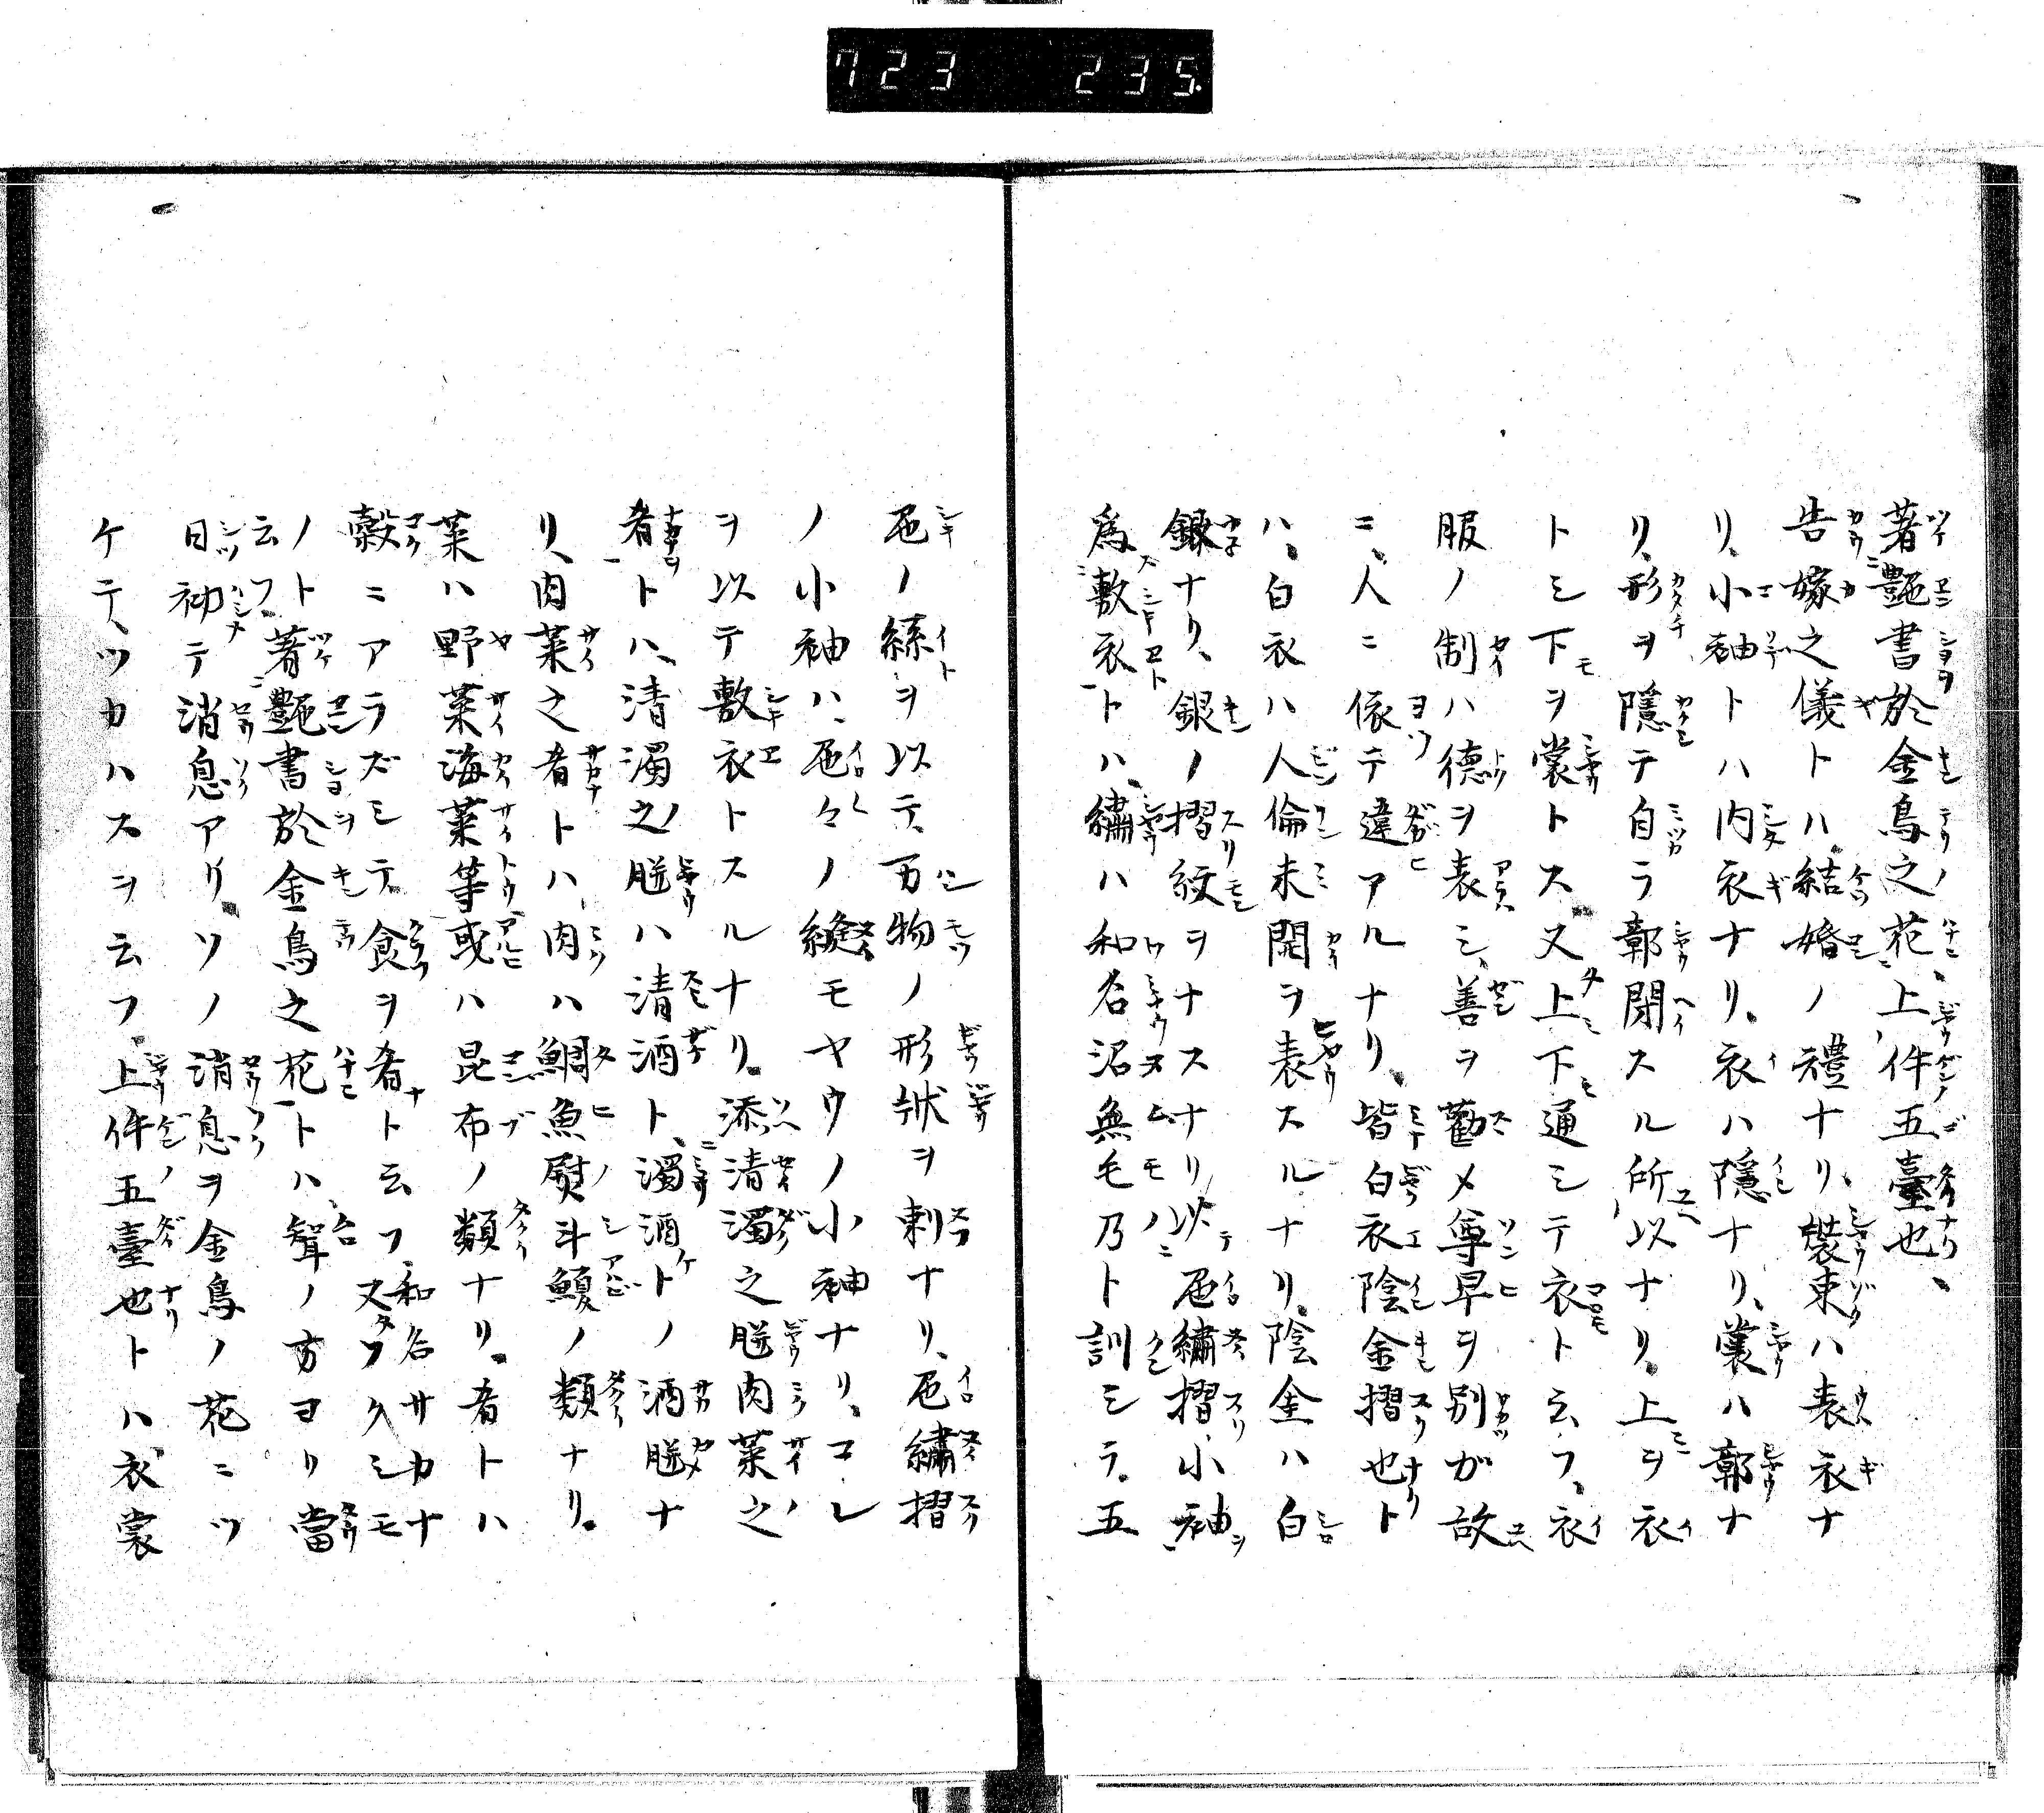 723 235.
著艶書於金鳥之花、上件五臺也、
告嫁之儀トハ、結婚ノ禮ナリ、裝束ハ表衣ナ
リ、小袖トハ内衣ナリ。衣ハ隱ナリ、裳ハ鄣ナ
リ、形ヲ隱テ自ラ鄣閉スル所以ナリ。上ヲ衣
トシ下ヲ裳トス。又上下通シテ衣ト云フ、衣
服ノ制ハ德ヲ表シ、善ヲ勸メ尊卑ヲ別ガ故
ニ、人ニ依テ違アルナリ。皆白衣陰金摺也ト
ハ、白衣ハ人倫未開ヲ表スルナリ。陰金ハ白
銀ナリ、銀ノ摺紋ヲナスナリ以色繡摺小袖
爲敷衣トハ、繡ハ和名沼無毛乃ト訓シテ。五
色ノ絲ヲ以テ、万物ノ形狀ヲ刺ナリ、色繡摺
ノ小袖ハ、色々ノ縫モヤウノ小袖ナリ、コレ
ヲ以テ敷衣トスルナリ。添清濁之𦜝肉菜之
肴トハ、清濁之𦜝ハ清酒ト、濁酒トノ酒𦜝ナ
リ、肉菜之肴トハ、肉ハ鯛魚熨斗鰒ノ類ナリ。
菜ハ野菜海菜等或ハ昆布ノ類ナリ。肴トハ
穀ニアラズシテ、食ヲ肴ト云フ、和名サカナ又ツクシモ
ノト云フ、著艶書於金鳥之花トハ、聟ノ方ヨリ當
日初テ消息アリ。ソノ消息ヲ金鳥ノ花ニツ
ケテ、ツカハスヲ云フ。上件五臺也トハ衣裳